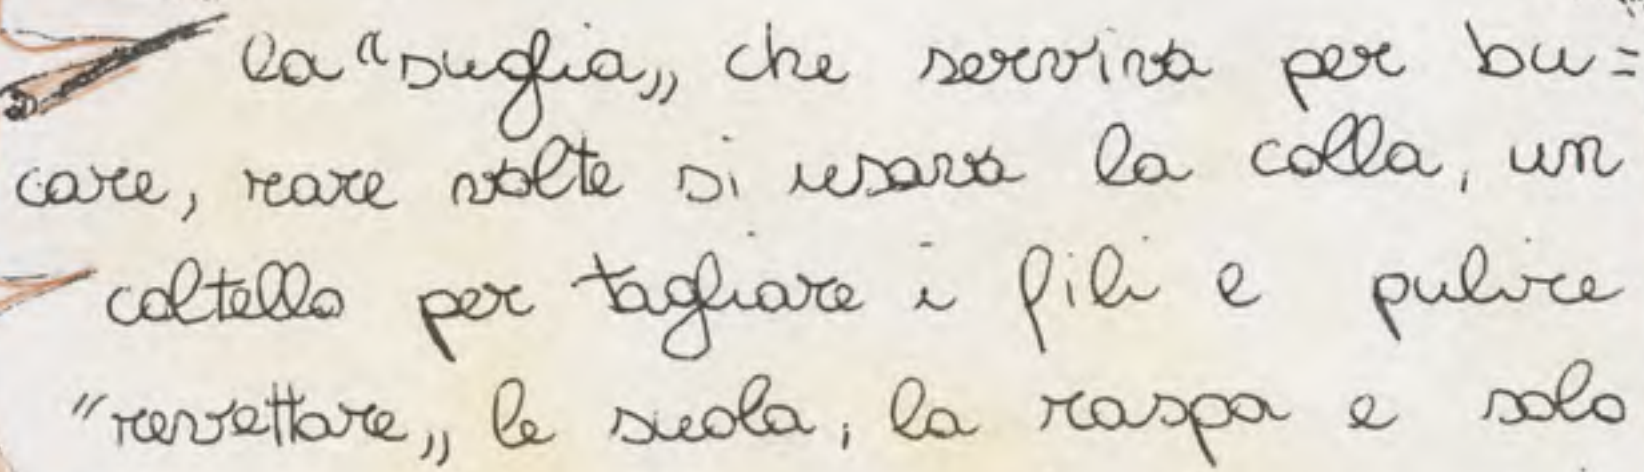 la “suglia„ che serviva per bu=
care, rare volte si usava la colla, un
coltello per tagliare i fili e pulire
"revettare„ le suola, la raspa e solo